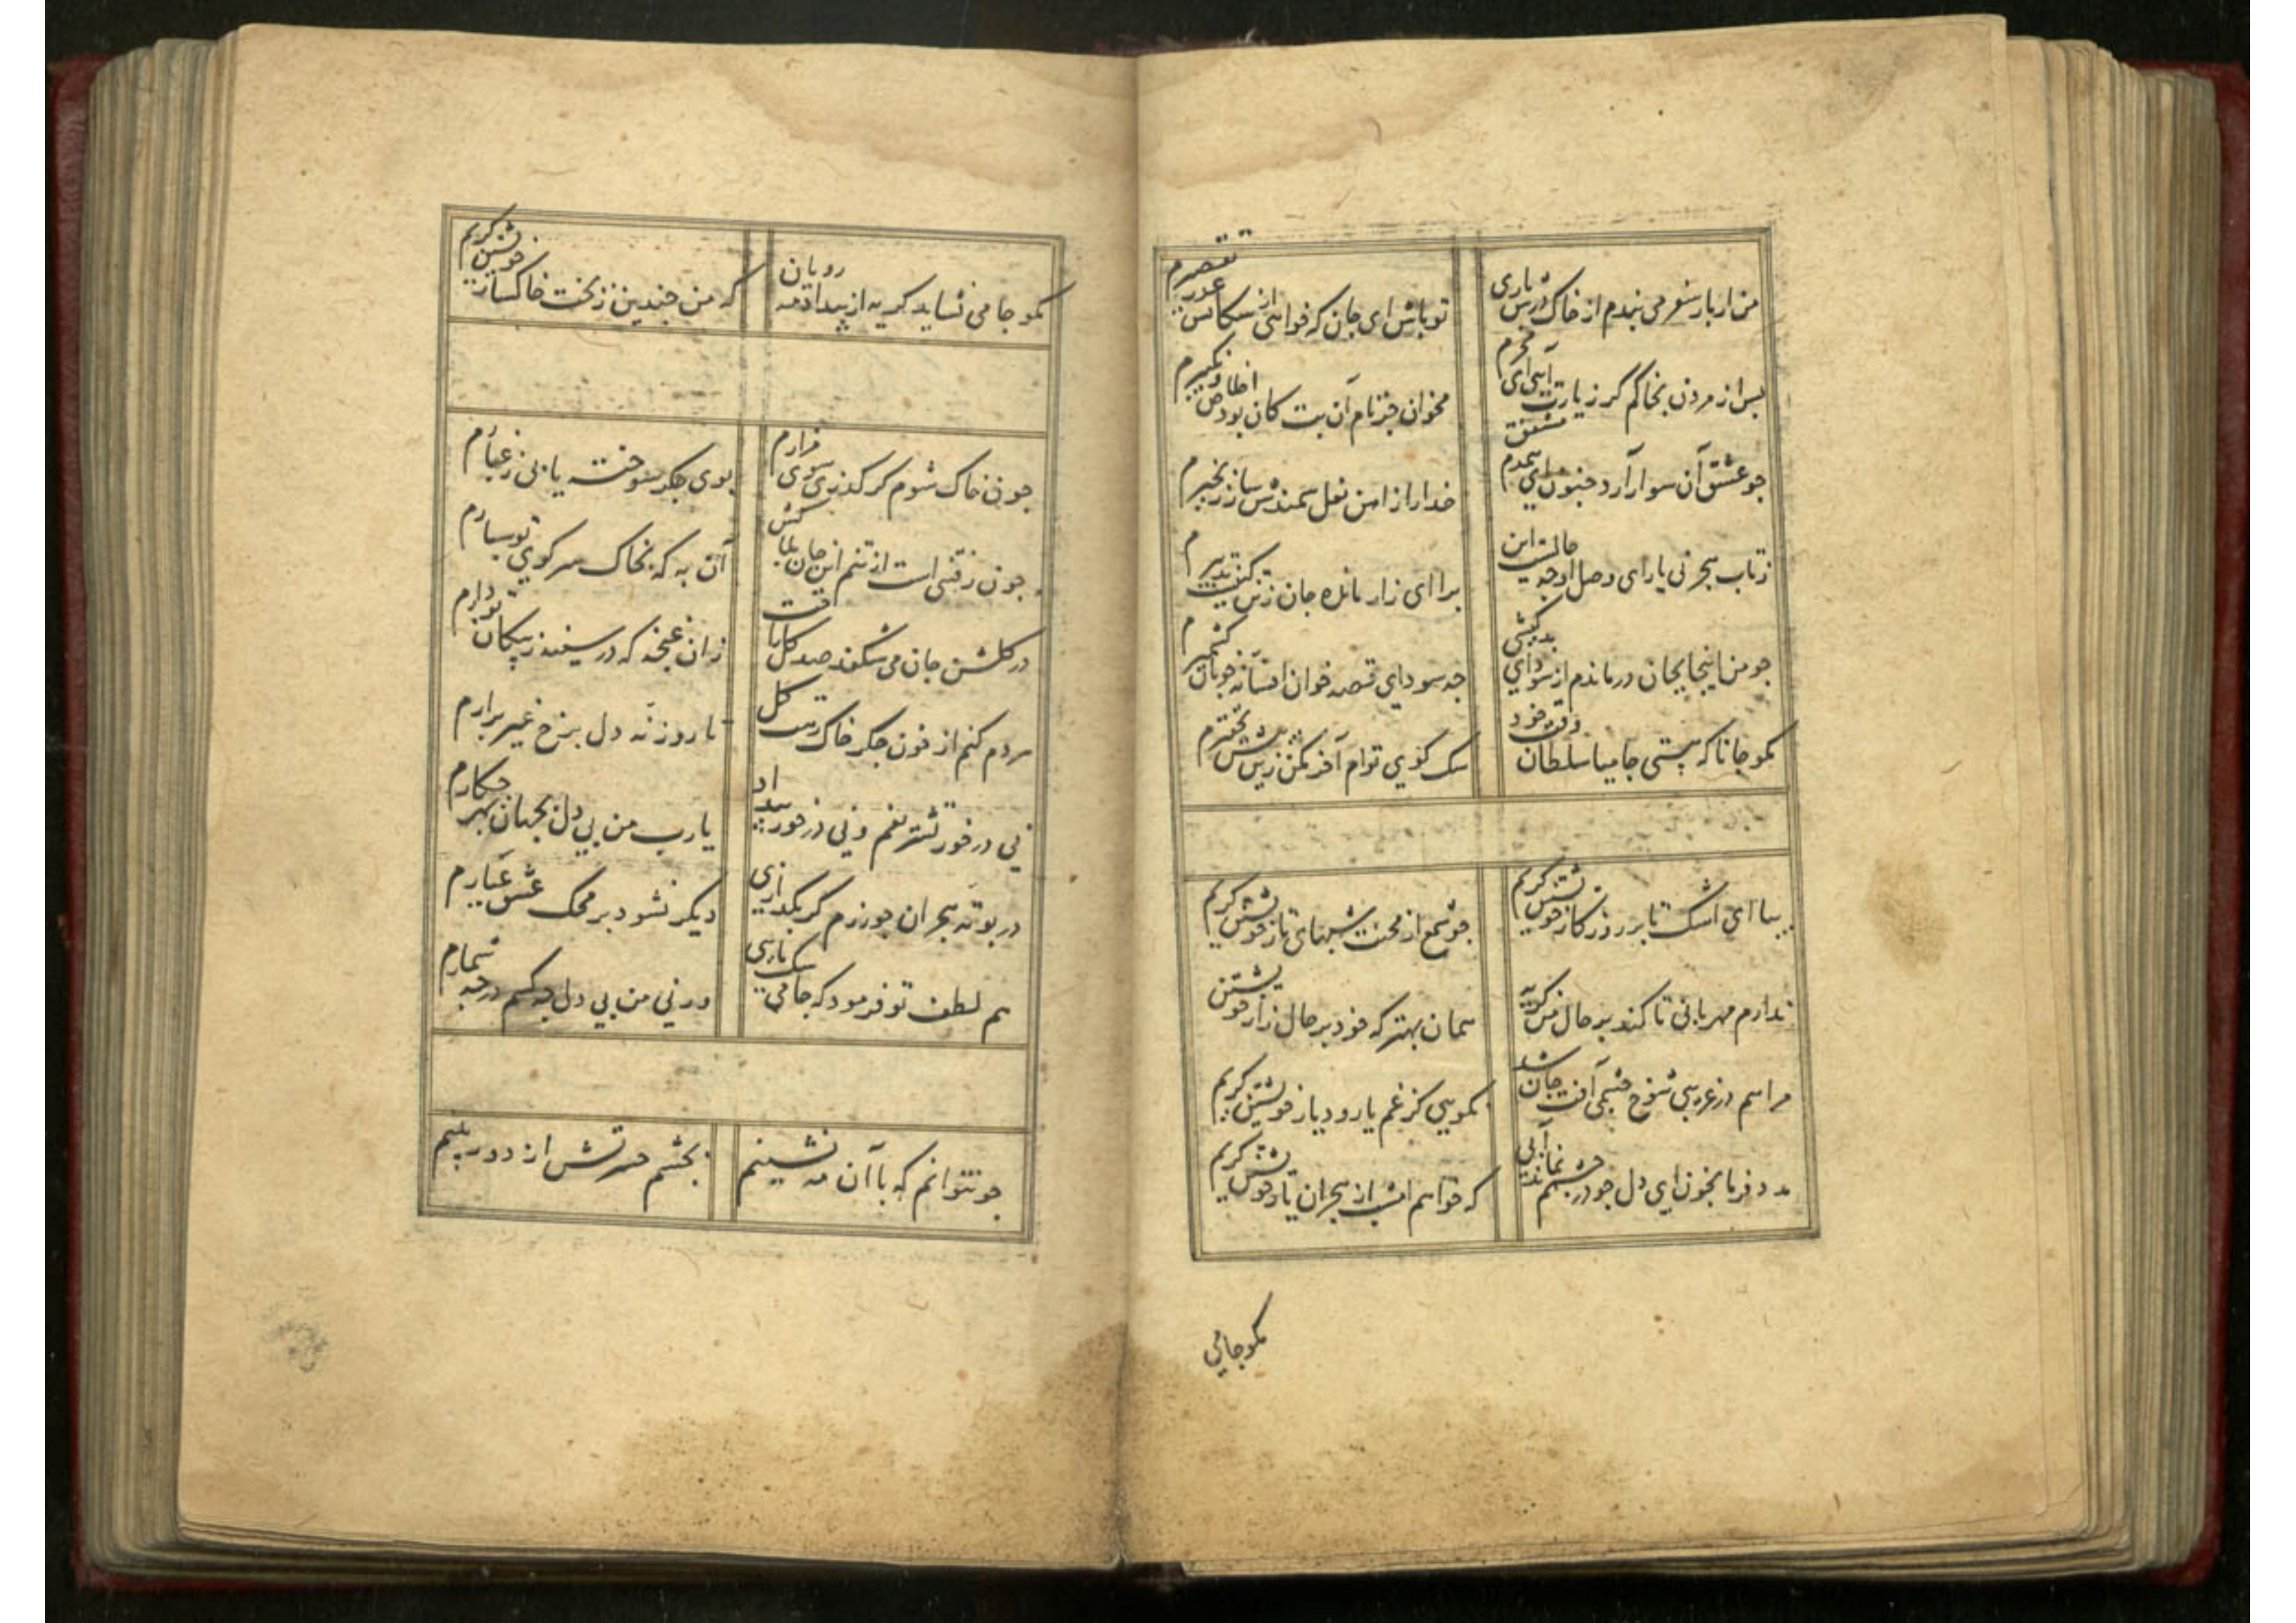 من ار بار سفر می بندم از خاک درش باری
تو باش ای جان که خواهی از سکانش عذر تقصیرم
پس از مردن بخاکم گر زیارت آیی ای محرم
مخوان جز نام آن بت کان بود
جو عشق آن سوار آرد جنون ای همدم مشفق
خدا را از آهن نعل سمندش ساز زنجیرم
ز تاب هجر نی یارای وصل او جه حالست این
برای زار مانده جان ز تن
جو من اینجا بجان درماندم از سودای بدکیشی
جه سودای قصه خوان افسانه خوبان کشمیرم
مکو جانا که هستی جامیا سلطان وقت خود
سک کوی توام آخر مکن زین بیش تحقیرم
بیا ای اشک تا بر روزکار خویشتن کریم
جو شمع از محنت شبهای تار خویشتن کریم
ندارم مهربانی تا کند بر حال من کریه
همان بهتر که خود بر حال زار خویشتن
مرا هم در غریبی شوخ چشمی آفت جان شد
نکویی کز غم یار و دیار خویشتن کریم
مدد فرما بخون ای دل جو در چشمم نماند آبی
که خواهم امشب از هجران یار خویشتن کریم
مکو جامی
مکو جامی نشاید کریه از بیداد مه رویان
که من جندین ز بخت خاکسار خویشتن کریم
جون خاک شوم کر کذری سوی مزارم
بوی جکر سوخته یابی ز غبارم
جون رفتنی است از تنم این جان بلاکش
آن به که بخاک سر کوی تو سپارم
در کلشن جان می شکفد صد کل راحت
زان غنجه که در سینه ز پیکان تو دارم
هر دم کنم از خون جکر خاک درت کل
تا روزنه دل برخ غیر برارم
نی در خور تشریفم و نی در خور بیداد
یا رب من بی دل بجهان بهر جکارم
در بوته هجران جو زرم کر بکدازی
دیکر نشود بر محک عشق عیارم
هم لطف تو فرمود که جامی سک ماری
ورنی من بی دل جه کسم در جه شمارم
جو نتوانم که با آن مه نشینم
بجشم حسرتش از دور بینم